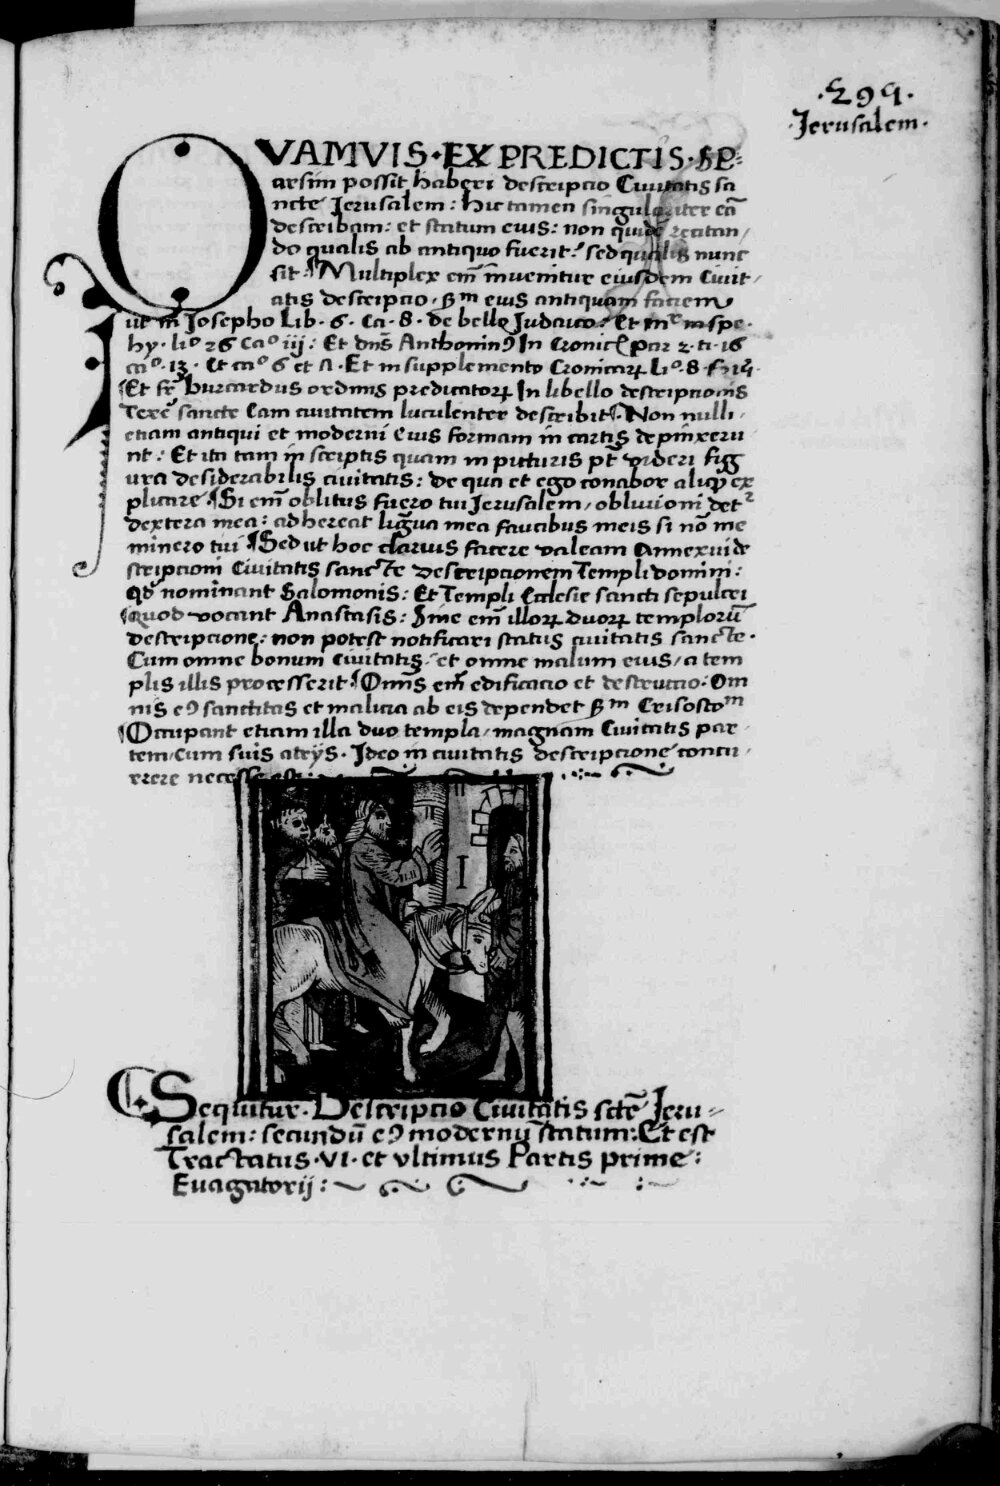 ·295·
·Jerusalem·
QVAMVIS·EX PREDICTIS·SP=
arsim possit haberi descripcio Ciuitatis sa
ncte Jerusalem: hic tamen singulariter eā
describam: et statum eius: non quidē recitan/
do qualis ab antiquo fuerit: sed qualis nunc
sit. Multiplex em̄ inuenitur eiusdem Ciuit/
atis descripcio. eius antiquam faciem
ut in Josepho Lib·6·Ca·8·de bello Judaico: Et in spe·
hy·liº 26 Caº iij: Et dn̄s Anthonin9 In Cronic par 2·ti·16
caº·13·Et caº 6 et ·Et in supplemento Cronicarꝝ Liº·8·
Et fr̄ burcardus ordinis predicatorꝝ In libello descripcionis
Terre sancte Eam ciuitatem luculenter describit. Non nulli/
etiam antiqui et moderni eius formam in cartis depinxeru
nt: Et ita tam in scriptis quam in picturis pt̄ videri figg
ura desiderabilis ciuitatis: de qua et ego conabor aliqđ ex
plicare. Si em̄ oblitus fuero tui Jerusalem/ obliuioni det²
dextera mea: adhereat lingua mea faucibus meis si nō me
minero tui Sed ut hoc clarius facere valeam Annexui de
scripcioni Ciuitatis sancte descripcionem Templi domini:
qđ nominant Salomonis: Et Templi Ecclesie sancti sepulcri
Quod vocant Anastasis: Sine em̄ illorꝝ duorꝝ templorū
descripcione: non potest notificari status ciuitatis sancte·
Cum omne bonum ciuitatis: et omne malum eius/ a tem
plis illis processerit. Omīs em̄ edificacio et destructio: Om
nis e9 sanctitas et malicia ab eis dependet Crisostoᵐ
Occupant etiam illa duo templa/ magnam Ciuitatis par·
tem/ cum suis atrijs· Ideo in ciuitatis descripcione concu/
rrere necesse est:
Sequitur·Descripcio Ciuitatis sctē Jeru=
salem: secundū e9 modernū statum: Et est
Tractatus·VI·et vltimus Partis prime:
Euagatorij: